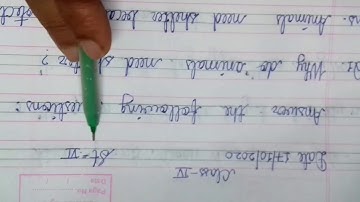 Class-IV
Date 17/10/2020
Answer the following Questions:
Why do animals need shelter ?
Ans. Animals need shelter